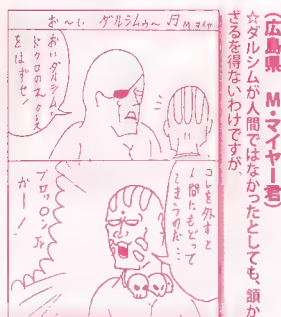 (広島県 M・マイヤー君)
☆ダルシムが人間ではなかったとしても、頷か
ざるを得ないわけですが、
お〜い ダルシムゥ〜 ♬ M マイヤ
おいダルシム、
ドクロのネックレス
をはずせ!
コレを外すと
人間にもどって
しまうのだ…
ブロッケンJr
かー!